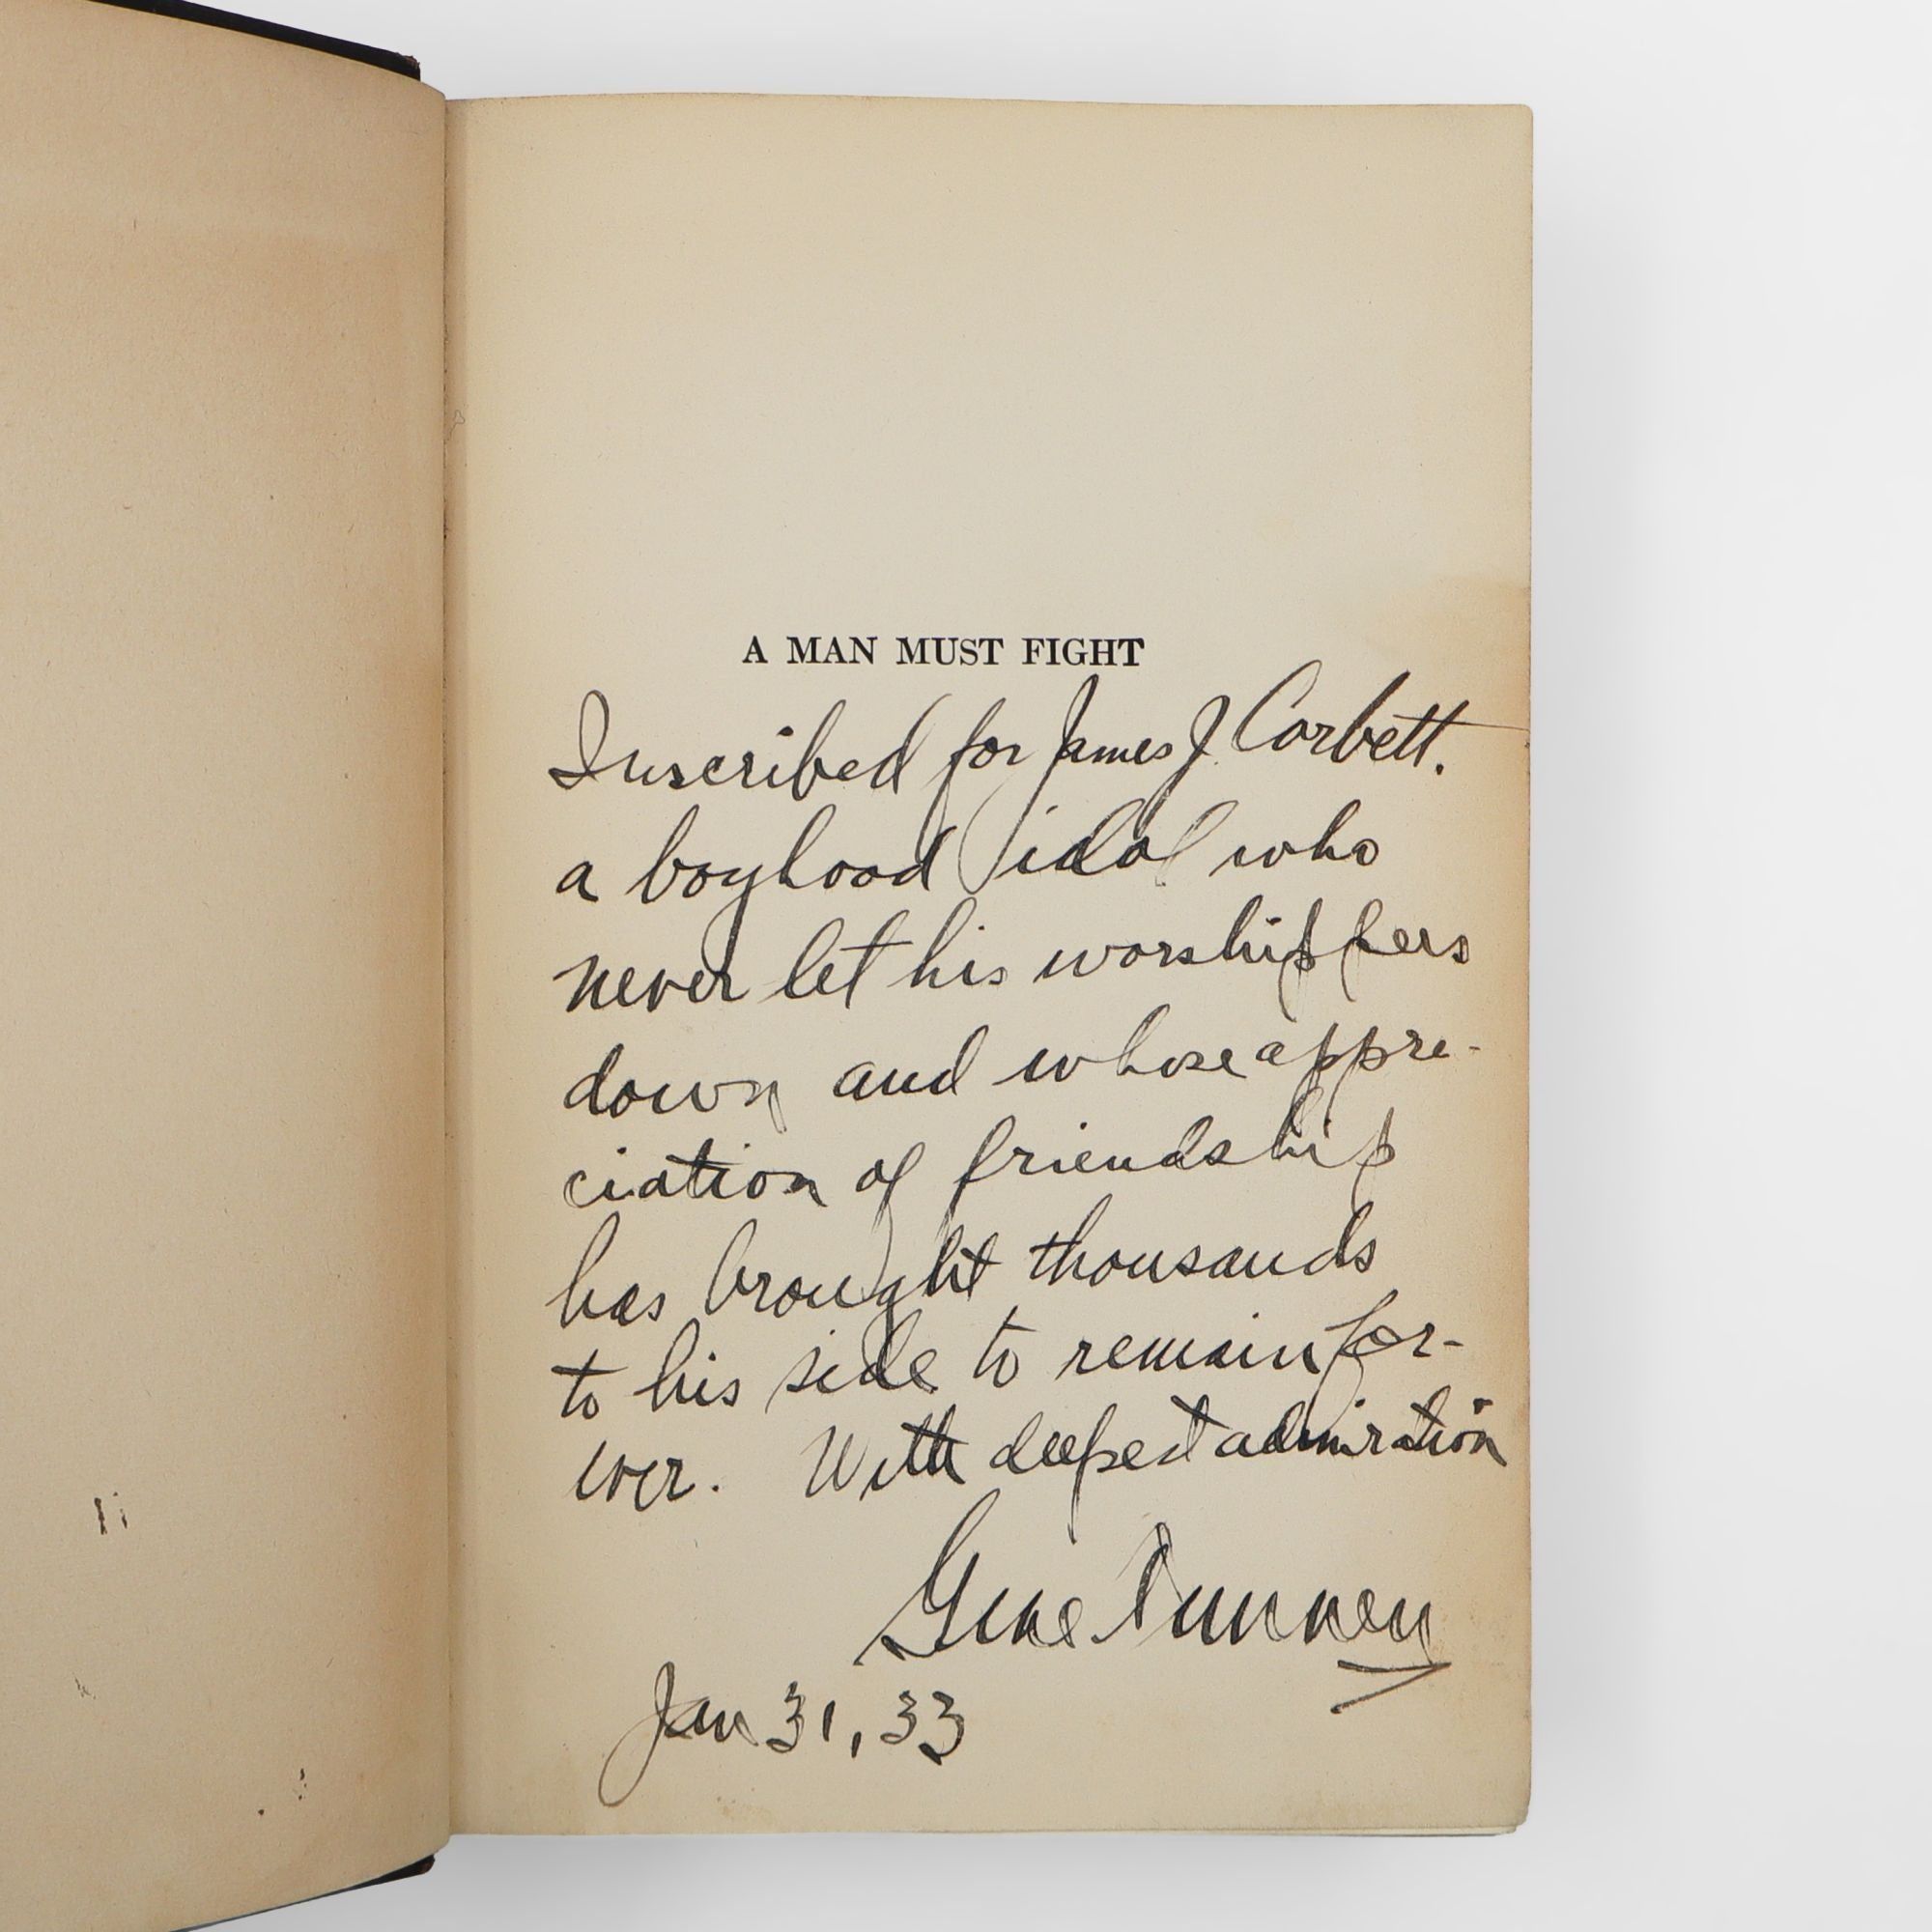 A MAN MUST FIGHT
Inscribed for James J. Corbett.
a boyhood idol who
never let his worshippers
down and whose appre-
ciation of friendship
has brought thousands
to his side to remain for-
ever. With deepest admiration
Gene Tunney
Jan 31, 33